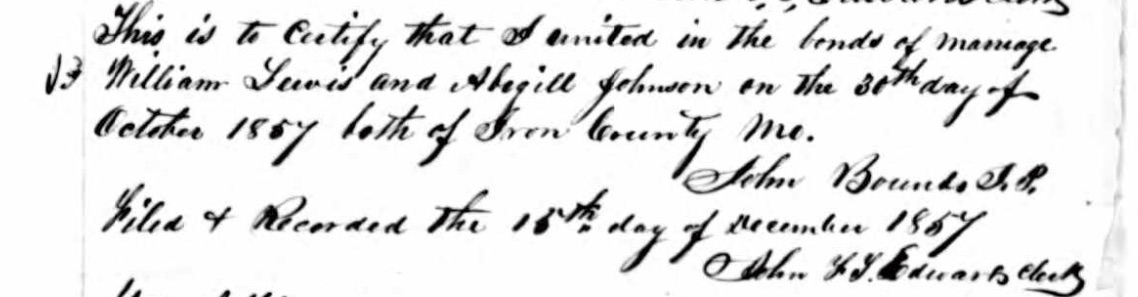 Edwards Clerk
This is to Certify that I united in the bonds of marriage
William Lewis and Abegill Johnson on the 30th day of
October 1857 both of Iron County Mo.
John Bounds J.P.
Filed & Recorded the 15th day of December 1857
John F. T. Edwards Clerk